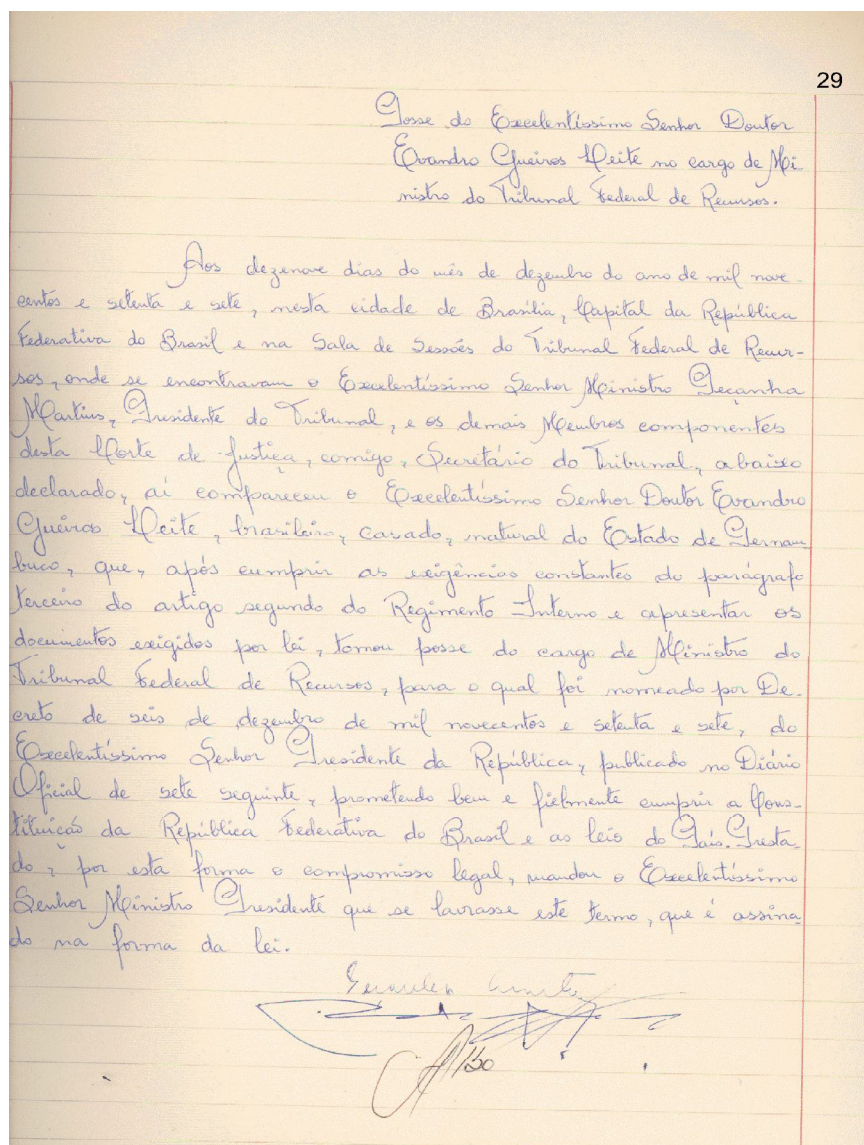 29
Posse do Excelentíssimo Senhor Doutor
Evandro Gueiros Leite no cargo de Mi
nistro do Tribunal Federal de Recursos.
Aos dezenove dias do mês de dezembro do ano de mil nove-
centos e setenta e sete, nesta cidade de Brasília, Capital da República
Federativa do Brasil e na Sala de Sessões do Tribunal Federal de Recur-
sos, onde se encontravam o Excelentíssimo Senhor Ministro Peçanha
Martins, Presidente do Tribunal, e os demais Membros componentes
desta Corte de Justiça, comigo, Secretário do Tribunal, abaixo
declarado, aí compareceu o Excelentíssimo Senhor Doutor Evandro
Gueiros Leite, brasileiro, casado, natural do Estado de Pernam
buco, que, após cumprir as exigências constantes do parágrafo
terceiro do artigo segundo do Regimento Interno e apresentar os
documentos exigidos por lei, tomou posse do cargo de Ministro do
Tribunal Federal de Recursos, para o qual foi nomeado por De-
creto de seis de dezembro de mil novecentos e setenta e sete, do
Excelentíssimo Senhor Presidente da República, publicado no Diário
Oficial de sete seguinte, prometendo bem e fielmente cumprir a Cons-
tituição da República Federativa do Brasil e as leis do País. Presta-
do, por esta forma o compromisso legal, mandou o Excelentíssimo
Senhor Ministro Presidente que se lavrasse este termo, que é assina
do na forma da lei.